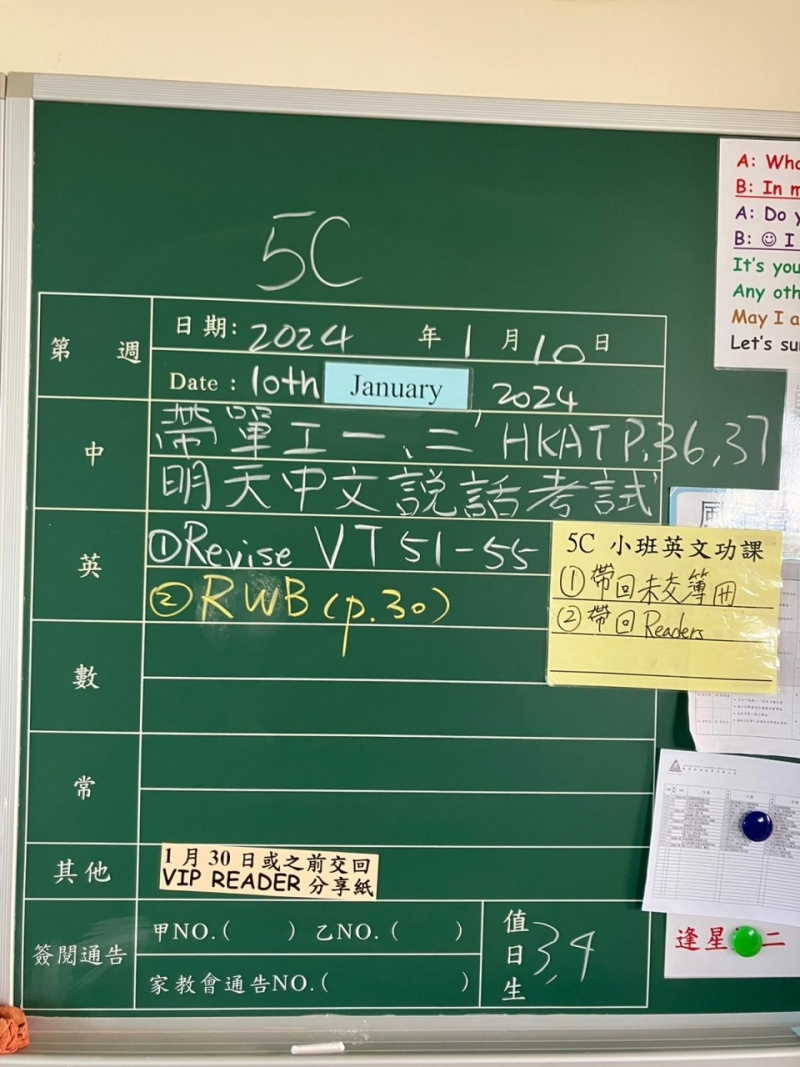 5C
第 週
日期: 2024 年 1 月 10 日
Date : 10th January 2024
中
帶單工一、二, HKAT P.36,37
明天中文說話考試
英
①Revise VT 51-55
②RWB (p.30)
5C 小班英文功課
①帶回未交簿冊
②帶回 Readers
數
常
其他
1 月 30 日或之前交回
VIP READER 分享紙
簽閱通告
甲NO.( ) 乙NO.( )
家教會通告NO.( )
值日生 3,4
A: Wh
B: In m
A: Do y
B: ☺ I
It's you
Any oth
May I a
Let's su
逢星 二